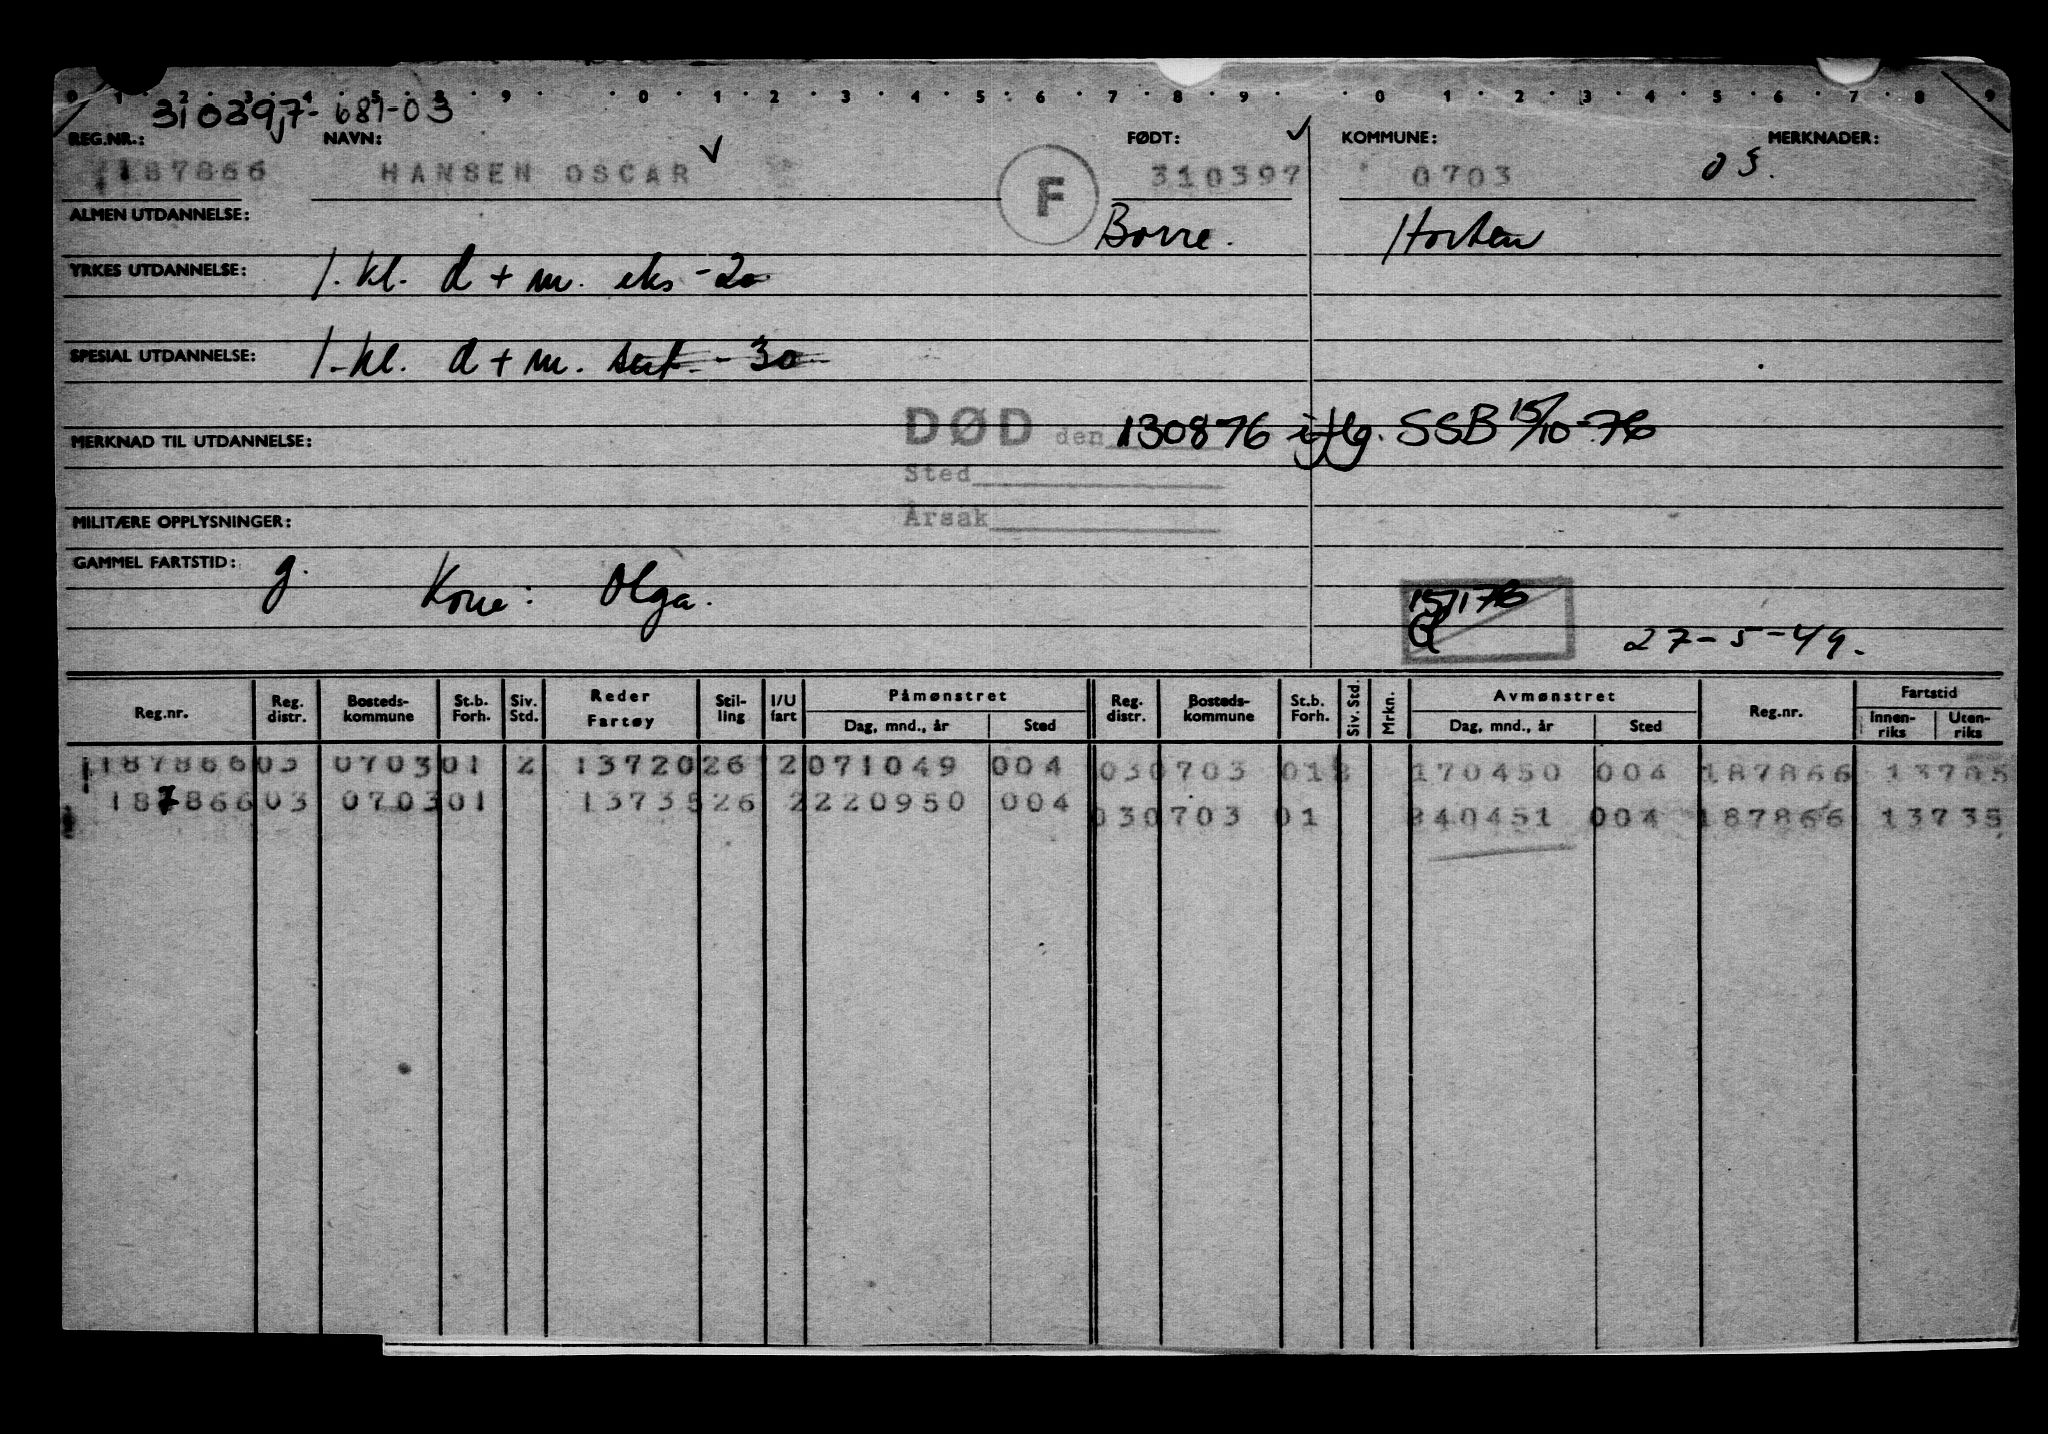 0 1 2 3 4 5 8 9 0 1 2 3 4 5 6 7 8 9 0 1 2 3 4 5 6 7 8 9
310397- 689-03
REG.NR.: NAVN: FØDT: KOMMUNE: MERKNADER:
187866 HANSEN OSCAR F 310397 0703 03.
ALMEN UTDANNELSE: Borre. Horten
YRKES UTDANNELSE: 1. kl. d + m. eks - 20
SPESIAL UTDANNELSE: 1. kl. d + m. sert. - 30
DØD den 130876 iflg. SSB 15/10-76
MERKNAD TIL UTDANNELSE:
Sted
Årsak
MILITÆRE OPPLYSNINGER:
GAMMEL FARTSTID: g. Kone: Olga.
27-5-49.
Reg.nr. Reg. distr. Bosteds- kommune St.b. Forh. Siv. Std. Reder Fartøy Stil- ling I/U fart Påmønstret Dag, mnd., år Sted Reg. distr. Bosteds- kommune St.b. Forh. Siv. Std. Mrkn. Avmønstret Dag, mnd., år Sted Reg.nr. Fartstid Innen- riks Uten- riks
187866 03 0703 01 2 13720 26 2 071049 004 03 0703 01 170450 004 187866 13705
187866 03 0703 01 13735 26 2 220950 004 03 0703 01 240451 004 187866 13735